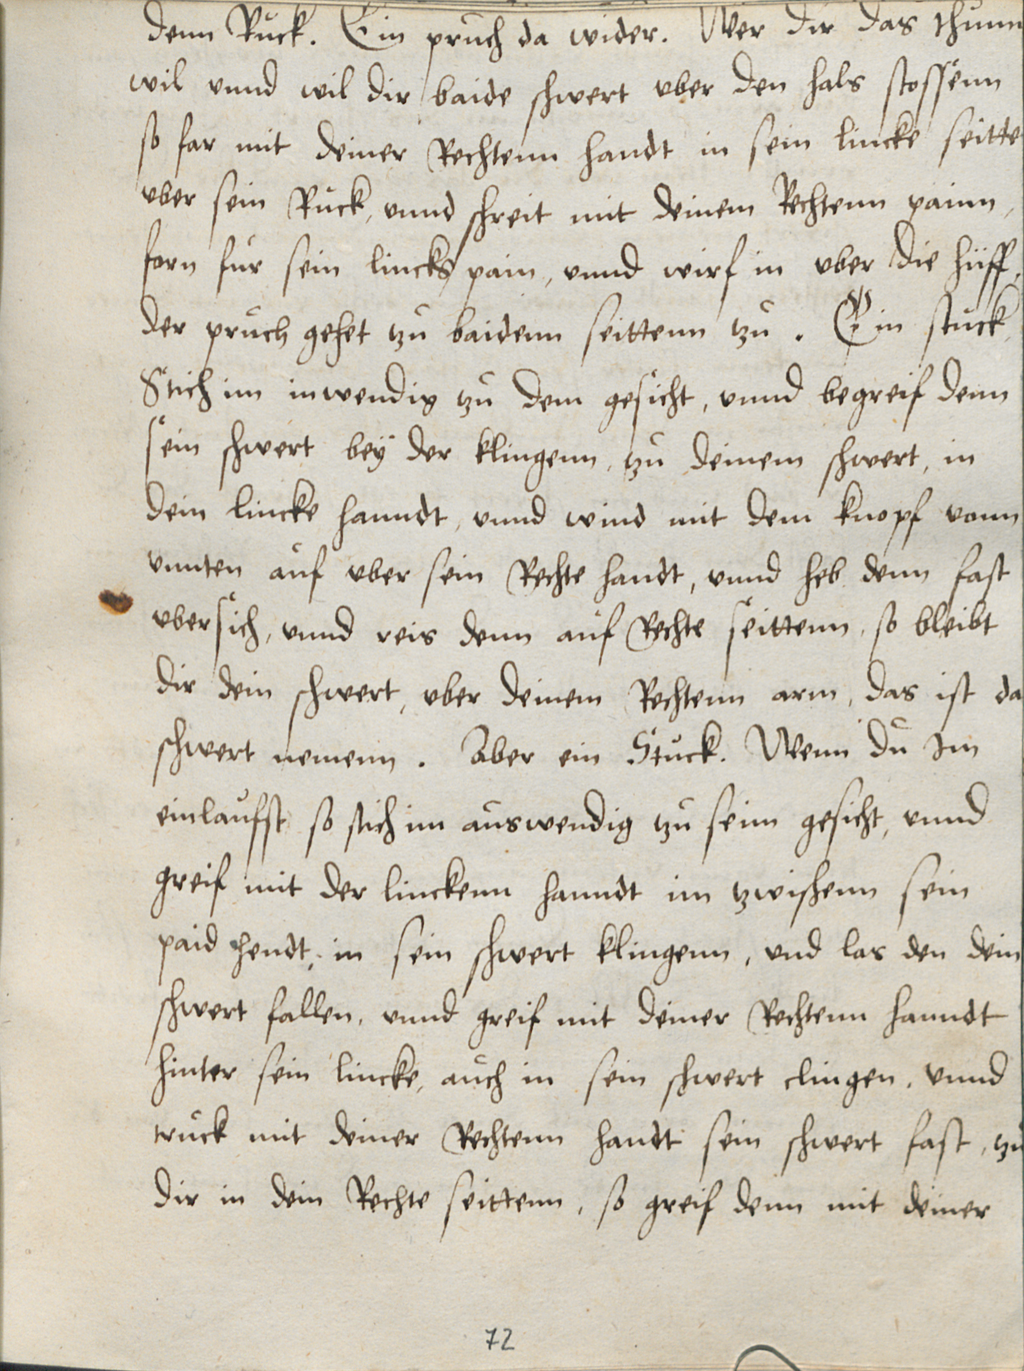 denn Ruck. Ein pruch da wider. Wer dir das thunn
wil vnnd wil dir baide schwert vber den hals stossenn
so far mit deiner Rechtenn handt in sein lincke seitte
vber sein Ruck, vnnd schreit mit deinem Rechtenn painn,
forn fur sein lincks pain, vnnd wirf in vber die hüff,
der pruch gehet tzu baidenn seittenn tzu. Ein stuck,
Stich im inwendig tzu dem gesicht, vnnd begreif denn
sein schwert beÿ der klingenn, tzu deinem schwert, in
dein lincke hanndt, vnnd wind mit dem knopf vonn
vnnten auf vber sein Rechte handt, vnnd heb denn fast
vbersich, vnnd reis denn auf Rechte seittenn, so bleibt
dir dein schwert, vber deinem Rechtenn arm, das ist da
schwert nemenn. Aber ein Stuck. Wenn du Im
einlaufst so stich im auswendig tzu seim gesicht, vnnd
greif mit der linckenn hanndt im tzwischenn sein
paid hendt, in sein schwert klingenn, vnd las den dein
schwert fallen, vnnd greif mit deiner Rechtenn hanndt
hinter sein lincke, auch in sein schwert clingen. vnnd
truck mit deiner Rechtenn handt sein schwert fast, tzu
dir in dein Rechte seittenn, so greif denn mit deiner
72